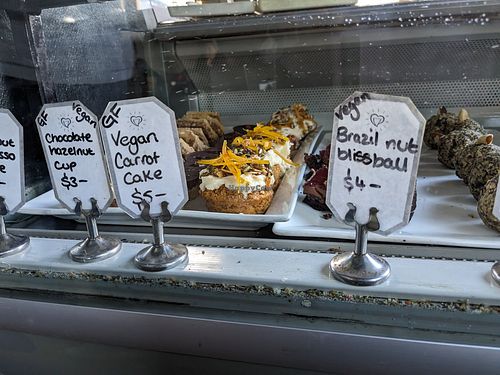 GF vegan
Chocolate
hazelnut
cup
$3-
GF
Vegan
Carrot
Cake
$5-
vegan
Brazil nut
blissball
$4-